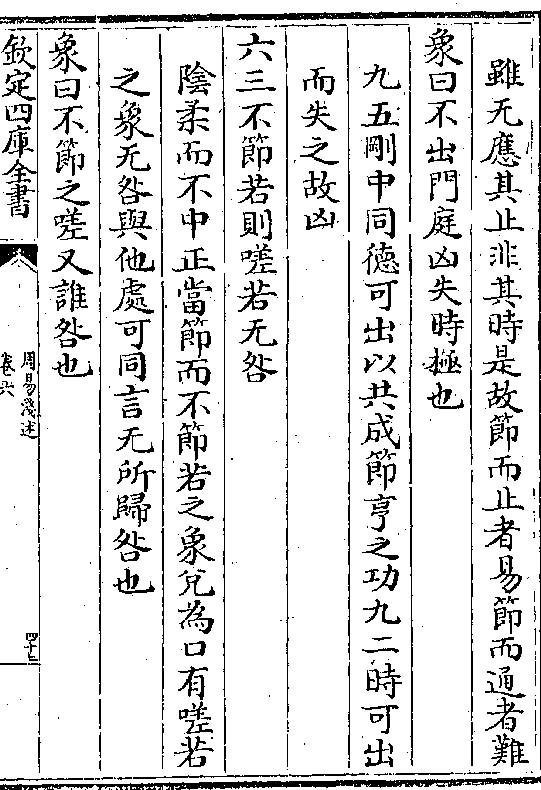 雖无應其止非其時是故節而止者易節而通者難
象曰不出門庭凶失時極也
九五剛中同德可出以共成節亨之功九二時可出
而失之故凶
六三不節若則嗟若无咎
陰柔而不中正當節而不節若之象兊為口有嗟若
之象无咎與他處可同言无所歸咎也
象曰不節之嗟又誰咎也
欽定四庫全書
周易淺述
卷六
四十三